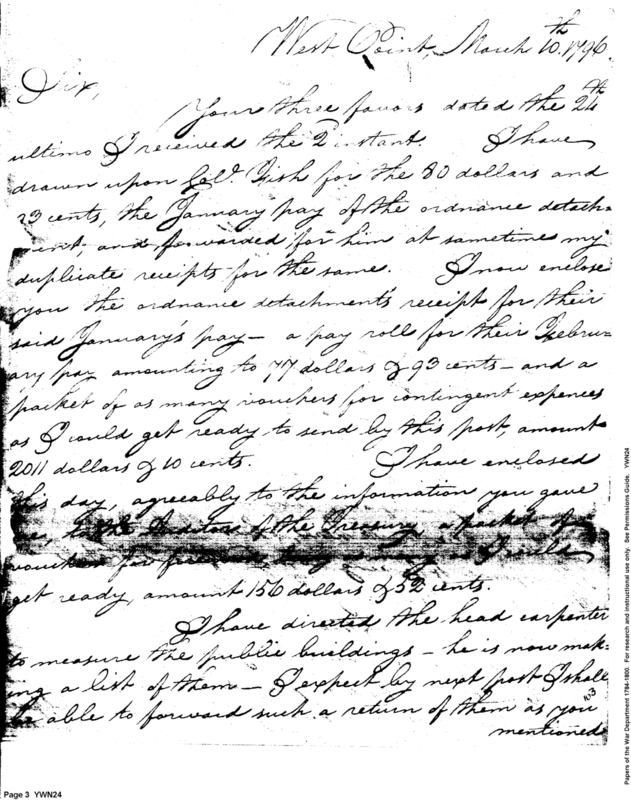 West Point, March 10.th 1796.
Sir,
Your three favors dated the 24th
ultimo I received the 2 instant. I have
drawn upon Col.o Fish for the 80 dollars and
23 cents, the January pay of the ordnance detach-
ment, and forwarded for him at sametime my
duplicate receipts for the same. I now enclose
you the ordnance detachment's receipt for their
said January's pay — a pay roll for their Febru-
ary pay amounting to 77 dollars & 93 cents — and a
packet of as many vouchers for contingent expences
as I could get ready to send by this post, amount
2011 dollars & 10 cents. I have enclosed
this day, agreeably to the information you gave
me, to the Auditor of the Treasury a packet of
vouchers for as many as I could
get ready, amount 156 dollars & 52 cents.
I have directed the head carpenter
to measure the public buildings — he is now mak-
ing a list of them — I expect by next post I shall
be able to forward such a return of them as you
mentioned
Page 3 YWN24
Papers of the War Department 1784-1800. For research and instructional use only. See Permissions Guide. YWN24